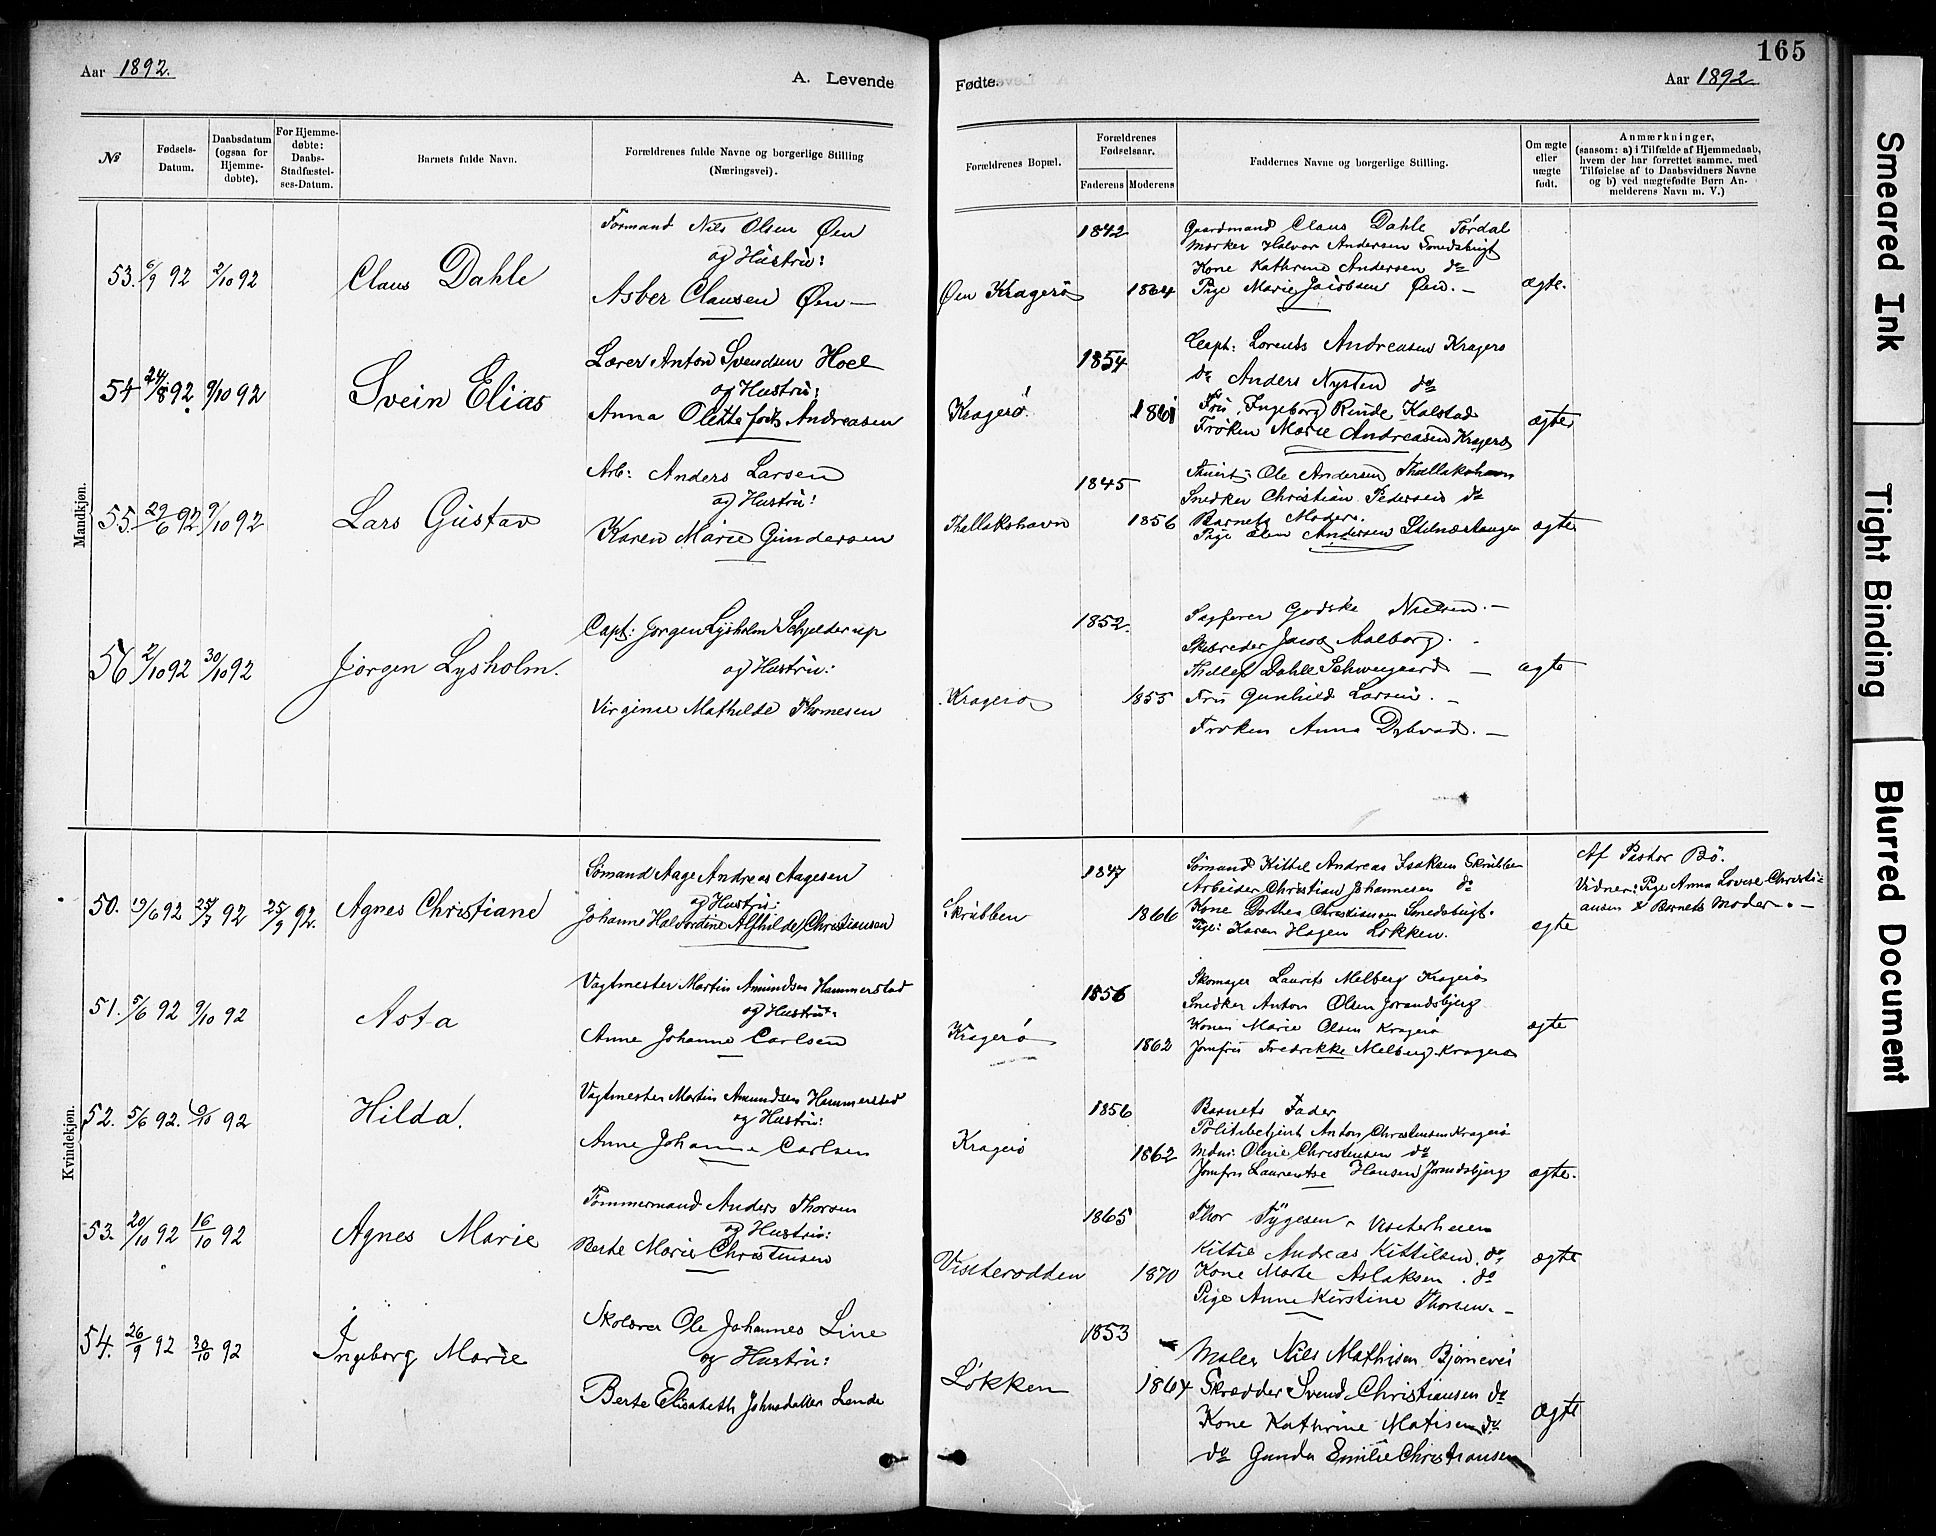 165
Aar 1892.
A. Levende
Fødte.
Aar 1892
№
Fødsels-Datum.
Daabsdatum (ogsaa for Hjemme-døbte).
For Hjemme-døbte: Daabs-Stadfæstel-ses-Datum.
Barnets fulde Navn.
Forældrenes fulde Navne og borgerlige Stilling (Næringsvei).
Forældrenes Bopæl.
Forældrenes Fødselsaar.
Faderens
Moderens
Faddernes Navne og borgerlige Stilling.
Om ægte eller uægte født.
Anmærkninger,
(saasom: a) i Tilfælde af Hjemmedaab,
hvem der har forrettet samme, med
Tilføielse af to Daabsvidners Navne
og b) ved uægtefødte Børn An-
melderens Navn m. V.)
Mandkjøn.
53. 6/9 92 2/10 92 Claus Dahle
Formand Nils Olsen Øen
og Hustru:
Asber Clausen Øen —
Øen Kragerø
1842
1864
Gaardmand Claus Dahle Tørdal
Mærker Halvor Andersen Smedsbugt
Kone Kathrine Andersen do
Pige Marie Jacobsen Øen. —
ægte.
54 24/8 92 9/10 92 Svein Elias
Lærer Anton Svendsen Hoel
og Hustru:
Anna Olette født Andreasen
Kragerø
1854
1861
Capt: Lorents Andreasen Kragerø
do Anders Nysten do
Fru Ingeborg Rinde Kalstad
Frøken Marie Andreasen Kragerø
ægte
55. 29/6 92 9/10 92 Lars Gustav
Arb: Anders Larsen
og Hustru:
Karen Marie Gundersen
Thellakshavn
1845
1856
Ole Andersen Thellakshavn
Snedker Christian Pedersen do
Barnets Moder.
Pige Andersen
ægte
56 2/10 92 30/10 92 Jørgen Lysholm.
Capt: Jørgen Lysholm Schjelderup
og Hustru:
Virginie Mathilde Thomesen
Kragerø
1852.
1855
Sagfører Godske Nielsen. —
Skibsreder Jacob Aalborg. -
Thellef Dahll Schweigaard —
Fru Gunhild Larsen. —
Frøken Anna Dybvad. —
ægte
Kvindekjøn.
50. 19/6 92 25/7 92 25/9 92. Agnes Christiane
Sømand Aage Andreas Aagesen
og Hustru:
Johanne Halvordine Alfhilde Christiansen
Skrubben
1847
1866
Sømand Kittil Andreas Isaksen Skrubben
Arbeider Christian Johannesen do
Kone Dorthea Christiansen Smedsbugt.
Pige: Karen Hagen Løkken.
ægte
Af Pastor Bö.
Vidner: Pige Anna Lovise Christi=
ansen & Barnets Moder. —
51. 5/6 92 9/10 92 Asta
Vagtmester Martin Amundsen Hammerstad
og Hustru:
Anne Johanne Carlsen
Kragerø
1856
1862
Skomager Laurits Melberg Kragerø
Snedker Anton Olsen Jorandsbjerg
Konen Marie Olsen Kragerø
Jomfru Fredrikke Melberg Kragerø
ægte
52. 5/6 92. 9/10 92 Hilda.
Vagtmester Martin Amundsen Hammerstad
og Hustru:
Anne Johanne Carlsen
Kragerø
1856
1862
Barnets Fader
Politibetjent Anton Christensen Kragerø
Mdm: Oline Christensen do
Jomfru Laurentse Hansen Jorandsbjerg
ægte.
53. 20/10 92 16/10 92 Agnes Marie
Tømmermand Anders Thorsen
og Hustru:
Berte Marie Christensen
Vissterodden
1865
1870
Thor Tygesen
Kittil Andreas Kittilsen do
Kone Marte Aslaksen. do
Pige Anne Kirstine Thorsen. —
ægte
54. 26/9 92 30/10 92 Ingeborg Marie
Skolærer Ole Johannes Line
og Hustru:
Berte Elisabeth Johnsdatter Lende
Løkken
1853
1864
Maler Nils Mathisen Bjørnevei
Skrædder Svend Christiansen do
Kone Kathrine Matisen do
do Gunda Emilie Christiansen
ægte
Smeared Ink
Tight Binding
Blurred Document